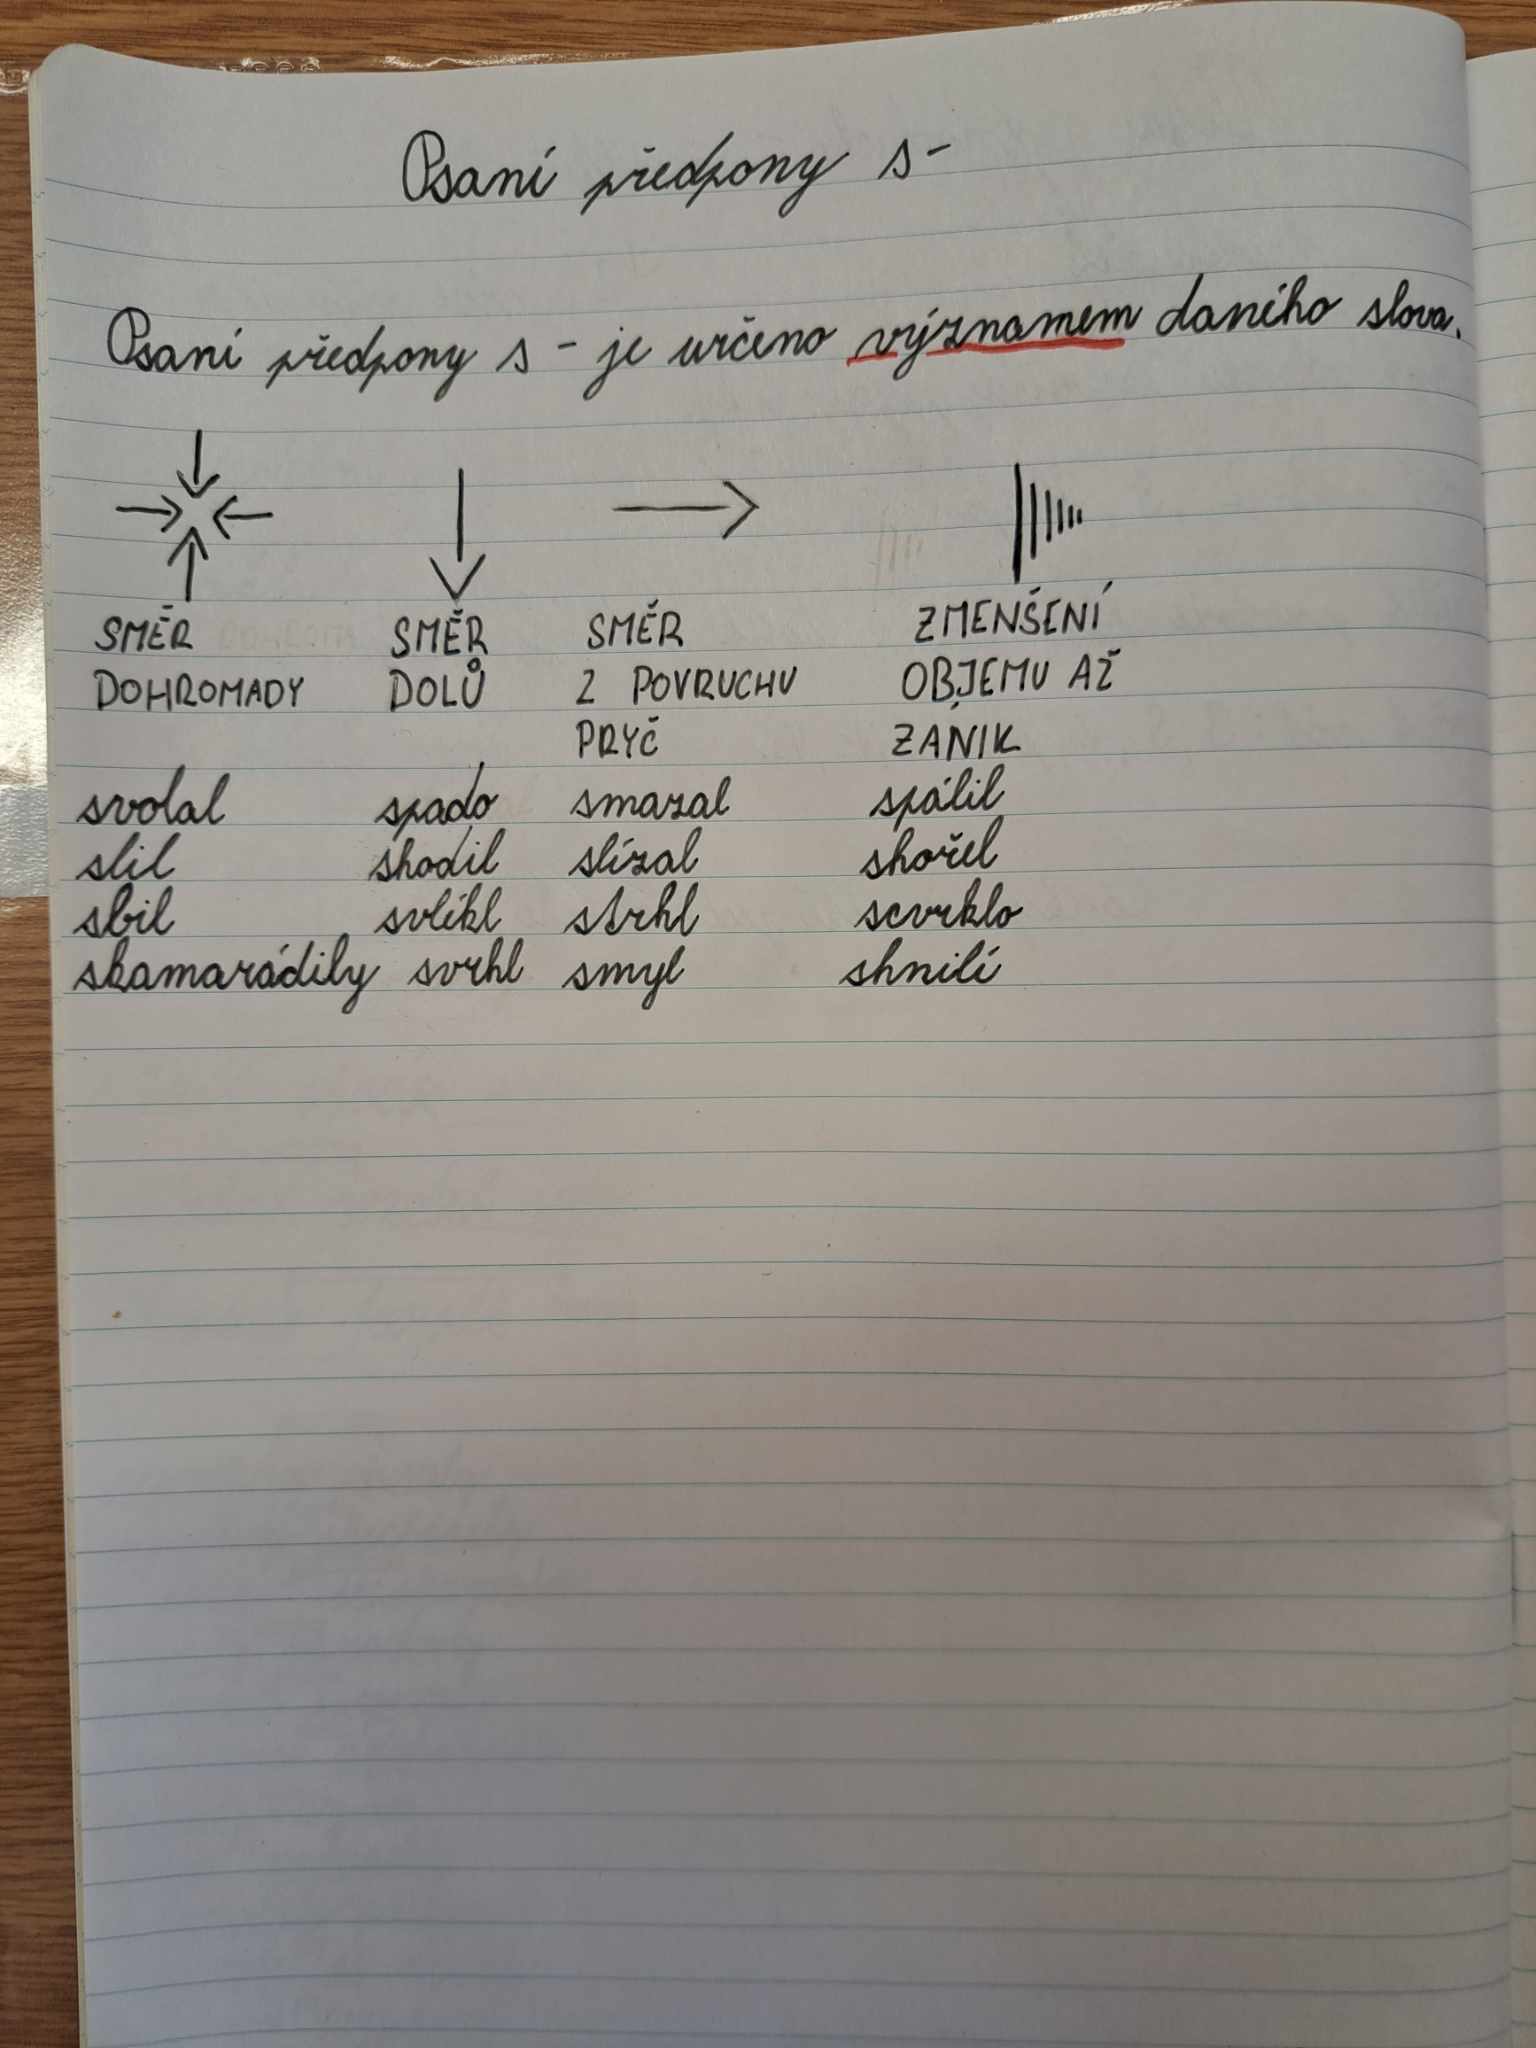 Psaní předpony s-
Psaní předpony s - je určeno významem daného slova.
SMĚR SMĚR SMĚR ZMENŠENÍ
DOHROMADY DOLŮ Z POVRUCHU OBJEMU AŽ
PRYČ ZANIK
svolal spado smazal spálil
slil shodil slízal shořel
sbil svlékl strhl scvrklo
skamarádily svrhl smyl shnilí